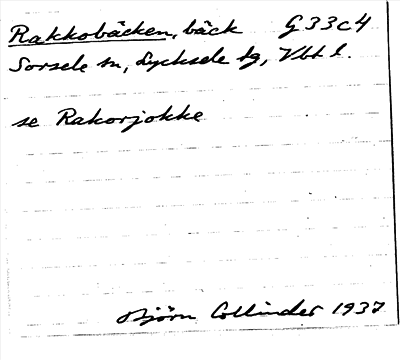 Rakkobäcken, bäck G33c4
Sorsele sn, Lycksele lg, Vbt l.
se Rakorjokke
Björn Collinder 1937